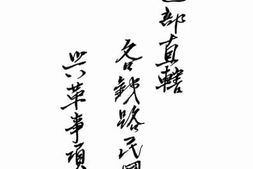 部直轄
各鐵路民國
興革事項